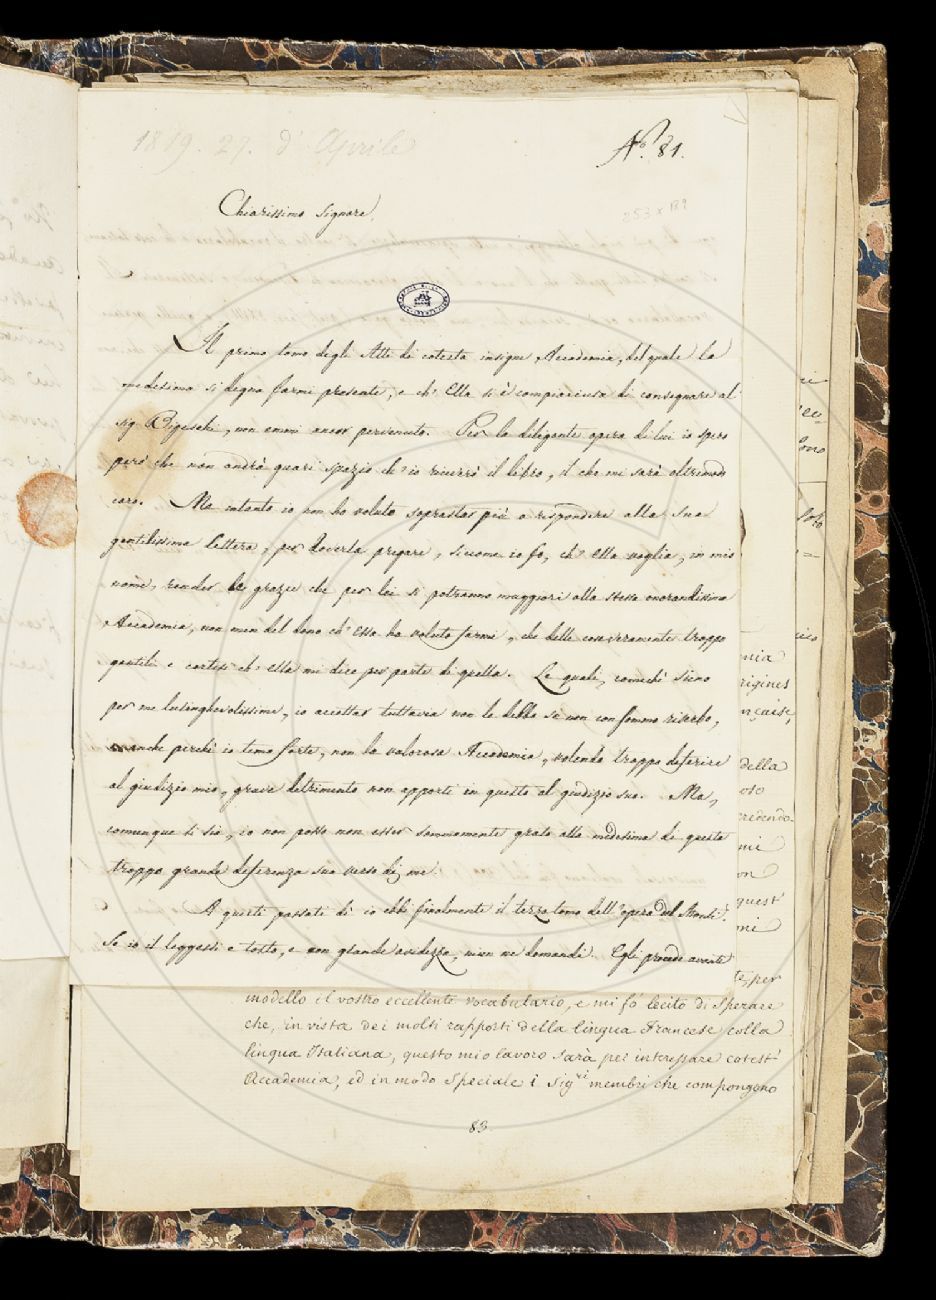 1819. 27. d'Aprile
No. 81.
Chiarissimo Signore,
253 x 189
Il primo tomo degli Atti di cotesta insigne Accademia, del quale la
medesima si degna farmi presente, e ch'Ella si è compiaciuta di consegnare al
sig. Bigeschi, non emmi ancor pervenuto. Per la diligente opera di lui io spero
però che non andrà guari spazio ch'io riceverò il libro, il che mi sarà oltremodo
caro. Ma intanto io non ho voluto soprastar più a rispondere alla Sua
gentilissima lettera, per doverla pregare, siccome io fo, ch'Ella voglia, in mio
nome, render le grazie che per lei si potranno maggiori alla stessa onorandissima
Accademia, non men del dono ch'Essa ha voluto farmi, che delle cose veramente troppo
gentili e cortesi ch'Ella mi dice per parte di quella. Le quali, comechè sieno
per me lusinghevolissime, io accettar tuttavia non le debbo se non con sommo riserbo,
anche perchè io temo forte, non la valorosa Accademia, volendo troppo deferire
al giudizio mio, grave detrimento non apporti in questo al giudizio suo. Ma,
comunque si sia, io non posso non esser sommamente grato alla medesima di questa
troppo grande deferenza sua verso di me.
A questi passati dì io ebbi finalmente il terzo tomo dell'opera del Monti.
Se io il leggessi e tosto, e con grande avidezza, niun ne domandi. Egli procede avente
modello il vostro eccellente vocabulario, e mi fò lecito di Sperare
che, in vista dei molti rapporti della lingua Francese colla
lingua Italiana, questo mio lavoro sarà per interessare cotest'
Accademia, ed in modo Speciale i Sig.ri membri che compongono
83
della
mia
rigines
nçaise,
oso
credendo
mi
on
quest'
mi
te, per